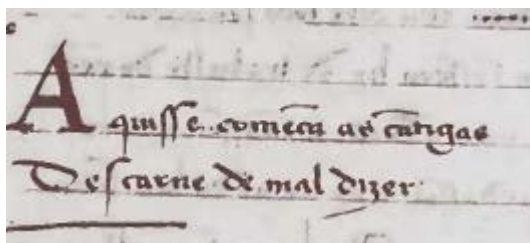 Aquisse comẽcã as cãtigas
Descarne de mal dizer